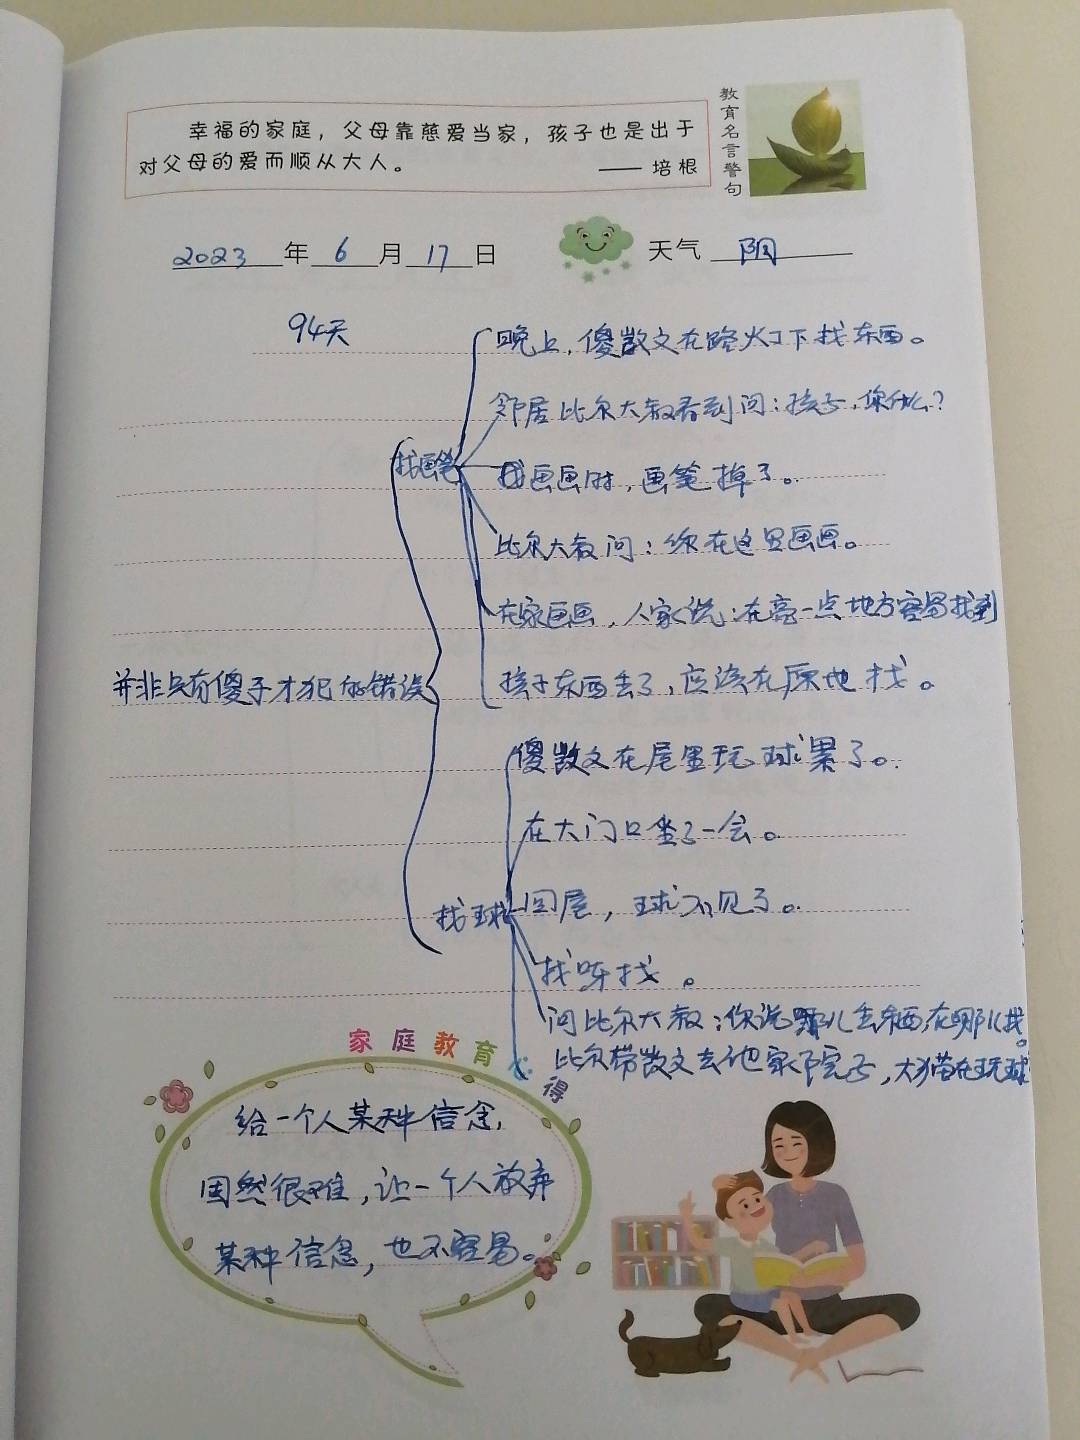 幸福的家庭，父母靠慈爱当家，孩子也是出于
对父母的爱而顺从大人。
—— 培根
教育名言警句
2023年6月17日 天气 阴
94天
晚上，傻散文在路灯下找东西。
邻居比尔大叔看到问：孩子，你什么？
找画笔
我画画时，画笔掉了。
比尔大叔问：你在这里画画。
在家画画，人家说：在亮一点地方容易找到
并非只有傻子才犯的错误
孩子东西丢了，应该在原地找。
傻散文在屋里玩球累了。
在大门口坐了一会。
找球
回屋，球不见了。
找呀找。
问比尔大叔：你说哪儿丢东西在哪儿找。
比尔带散文去他家院子，大猫在玩球
家庭教育心得
给一个人某种信念，
固然很难，让一个人放弃
某种信念，也不容易。